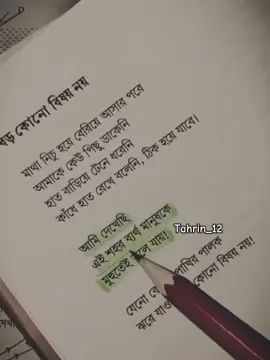 বড় কোনো বিষয় নয়
মাথা নিচু হয়ে বেরিয়ে আসার পরে
আমাকে কেউ পিছু ডাকেনি
হাত বাড়িয়ে টেনে ধরেনি
কাঁধে হাত রেখে বলেনি, ঠিক হয়ে যাবে।
আমি দেখেছি
এই শহর ব্যর্থ মানুষকে
মুহূর্তেই ভুলে যায়।
যেনো পাখির পালক
ঝরে যাওয়া কোনো বিষয় নয়!
Tahrin_12